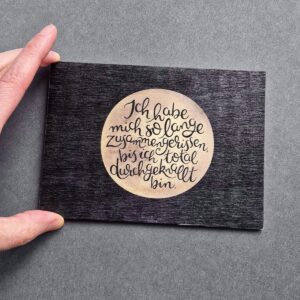 Ich habe
mich so lange
zusammengerissen,
bis ich total
durchgeknallt
bin.